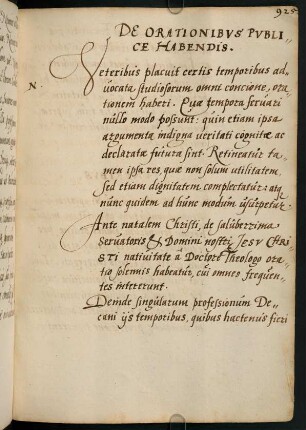 925
DE ORATIONIBVS PVBLI
CE HABENDIS.
N.
Veteribus placuit certis temporibus ad,
uocata studiosorum omni concione, ora
tionem haberi. Quæ tempora seruari
nullo modo possunt: quin etiam ipsa
argumenta indigna ueritati cognitæ ac
declaratæ futura sint. Retineatur ta,
men ipsa res, quæ non solum utilitatem
sed etiam dignitatem complectatur: atq;
nunc quidem ad hunc modum usurpetur.
Ante natalem Christi, de saluberrima
Seruatoris & Domini nostri IESV CHRI,
STI natiuitate à Doctore Theologo ora
tio solemnis habeatur, cui omnes frequen,
tes intererunt.
Deinde singularum professionum De,
cani ijs temporibus, quibus hactenus fieri